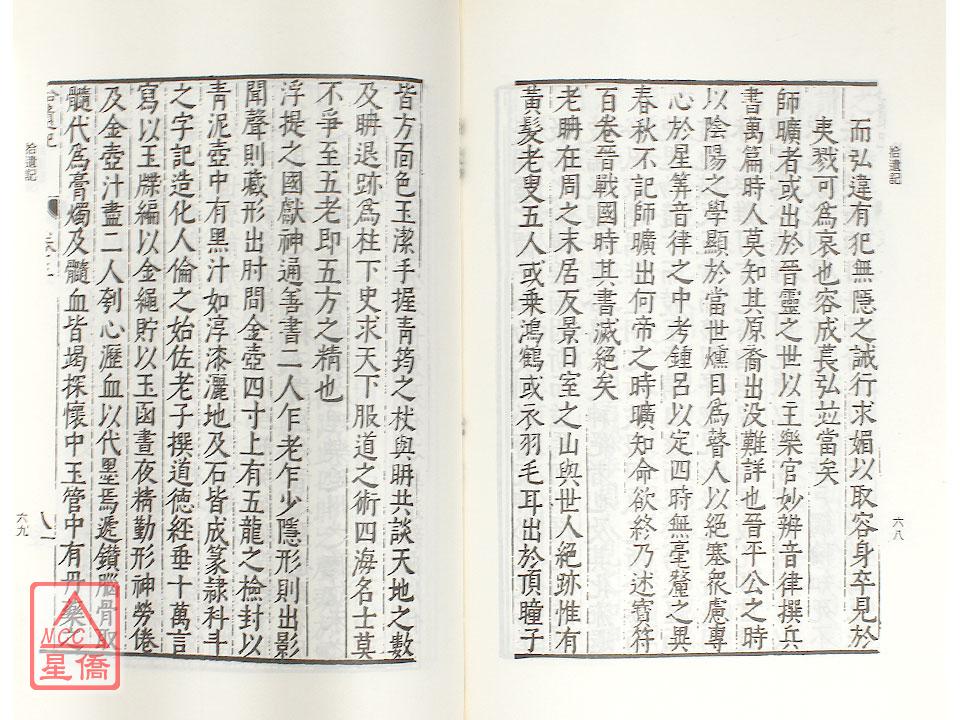 拾遺記
六八
而弘違有犯無隱之誡行求媚以取容身卒見於
夷戮可為哀也容成萇弘並當矣
師曠者或出於晉靈之世以王樂官妙辨音律撰兵
書萬篇時人莫知其原裔出没難詳也晉平公之時
以陰陽之學顯於當世燻目為瞽人以絕塞衆慮專
心於星筭音律之中考鍾呂以定四時無毫釐之異
春秋不記師曠出何帝之時曠知命欲終乃述寶符
百卷晉戰國時其書滅絕矣
老聃在周之末居反景日室之山與世人絕跡惟有
黃髮老叟五人或乘鴻鶴或衣羽毛耳出於頂瞳子
皆方面色玉潔手握青筠之杖與聃共談天地之數
及聃退跡為柱下史求天下服道之術四海名士莫
不爭至五老即五方之精也
浮提之國獻神通善書二人乍老乍少隱形則出影
聞聲則藏形出肘間金壺四寸上有五龍之檢封以
青泥壺中有黑汁如淳漆灑地及石皆成篆隷科斗
之字記造化人倫之始佐老子撰道德經垂十萬言
寫以玉牒編以金繩貯以玉函晝夜精勤形神勞倦
及金壺汁盡二人刳心瀝血以代墨焉遞鑽腦骨取
髓代為膏燭及髓血皆竭探懷中玉管中有丹藥
拾遺記
六九
NCC
星僑